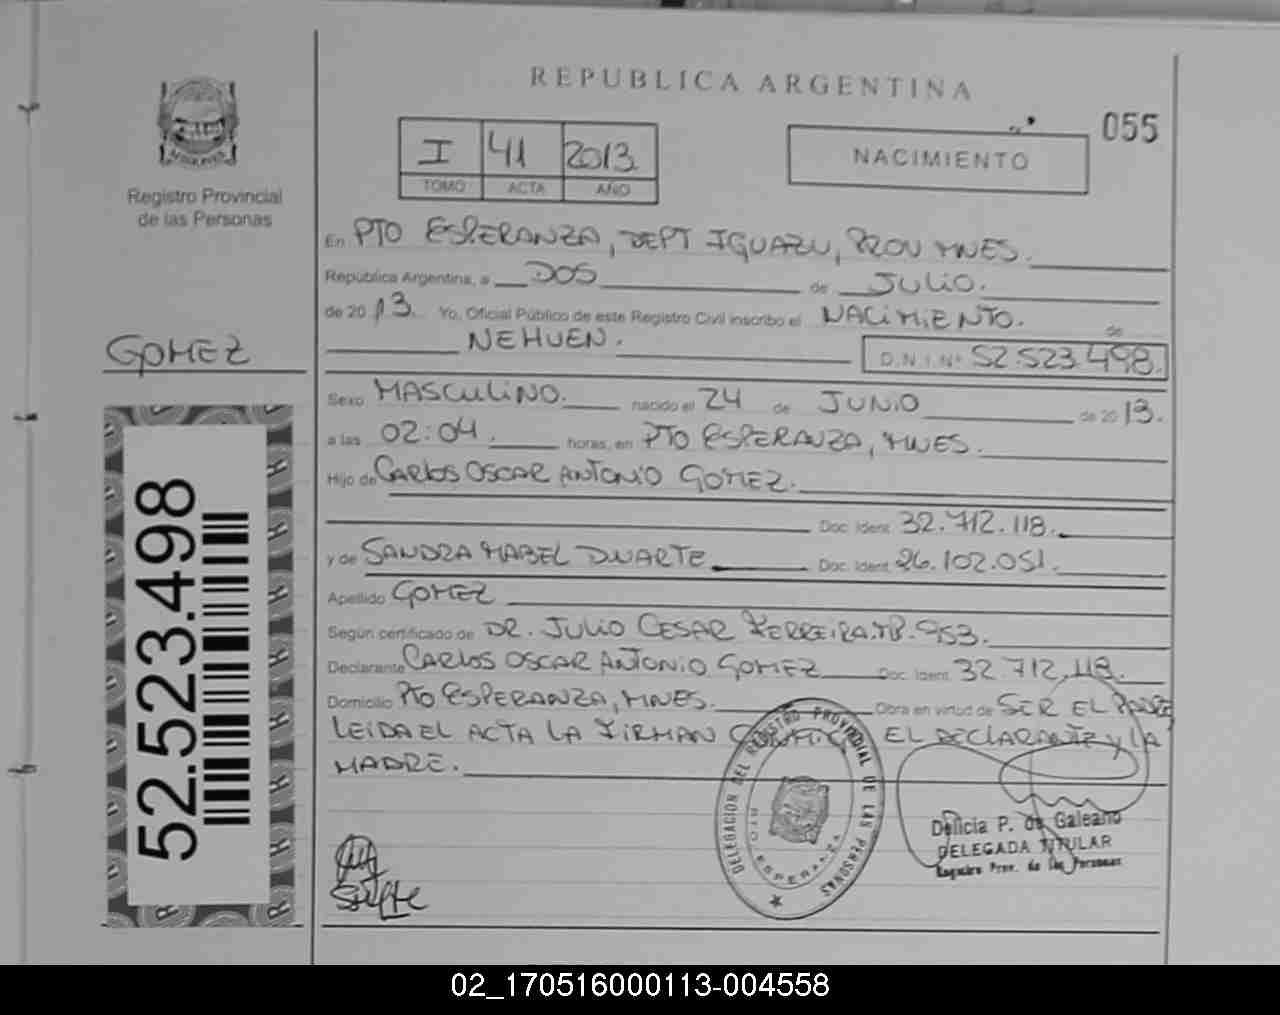 REPUBLICA ARGENTINA
055
I 41 2013
TOMO ACTA AÑO
NACIMIENTO
Registro Provincial
de las Personas
En PTO ESPERANZA, DEPT IGUAZU, PROV MNES.
República Argentina, a DOS de JULIO.
de 2013. Yo, Oficial Público de este Registro Civil inscribo el NACIMIENTO. de
NEHUEN. D.N.I.Nº 52.523.498.
GOMEZ
Sexo MASCULINO. nacido el 24 de JUNIO de 2013.
a las 02:04. horas, en PTO ESPERANZA, MNES.
Hijo de CARLOS OSCAR ANTONIO GOMEZ.
Doc. Ident. 32.712.118.
y de SANDRA MABEL DUARTE Doc. Ident. 26.102.051.
Apellido GOMEZ
Según certificado de DR. JULIO CESAR FERREIRA.MP.953.
Declarante CARLOS OSCAR ANTONIO GOMEZ Doc. Ident. 32.712.118.
Domicilio PTO ESPERANZA, MNES. Obra en virtud de SER EL PADRE
LEIDA EL ACTA LA FIRMAN EL DECLARANTE Y LA
MADRE.
52.523.498
DELEGACION DEL REGISTRO PROVINCIAL DE LAS PERSONAS
PTO ESPERANZA
Delicia P. de Galeano
DELEGADA TITULAR
Registro Prov. de las Personas
02_170516000113-004558